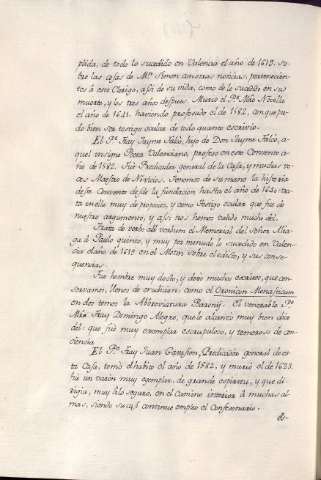 plida, de todo lo sucedido en Valencia el año de 1619. so-
bre las cosas de Mⁿ. Simon con otras noticias, pertenecien-
tes à este Clerigo, assi de su vida, como de lo sucedido en su
muerte, y los tres años despues. Murio el Pᵉ.
el año de 1641. haviendo professado el de 1582, con que pu-
do bien ser testigo ocular de todo quanto escrivio.
El Pᵉ. Fray Jayme Falcò, hijo de Don Jayme Falcò, a-
quel insigne Poeta Valenciano, professo en este Convento a-
ño de 1582. Fue Predicador general de la Casa, y muchas ve-
ces Maestro de Novicios. Tenemos de su mano la historia
deste Convento desde la fundacion hasta el año de 1641. tra-
ta en ella muy de proposito, y como testigo ocular que fue de
nuestro argumento, y assi nos hemos valido mucho del.
Parte de verbo ad verbum el Memorial del Señor Alia-
ga à Paulo quinto, y muy por menudo lo sucedido en Valen-
cia el año de 1619 en el Motin sobre el edicto, y sus conse-
quencias.
Fue hombre muy docto, y dexò muchos escritos, que con-
servamos, llenos de erudicion; como el Cronicon Monasticum
en dos tomos la Abbreviatura Baronij. El venerable Pᵉ.
Mᵒ. Fray Domingo Alegre, que lo alcanzò muy bien dice
del: que fue muy exemplar escrupuloso, y temeroso de con-
ciencia.
El Pᵉ. Fray Juan Predicador general de es-
ta Casa, tomò el habito el año de 1582, y muriò el de 1623.
fue un varon muy exemplar, de grande espiritu, y que di-
rigia, muy à lo seguro, en el Camino interior à muchas al-
mas, siendo su continuo empleo el Confessonario.